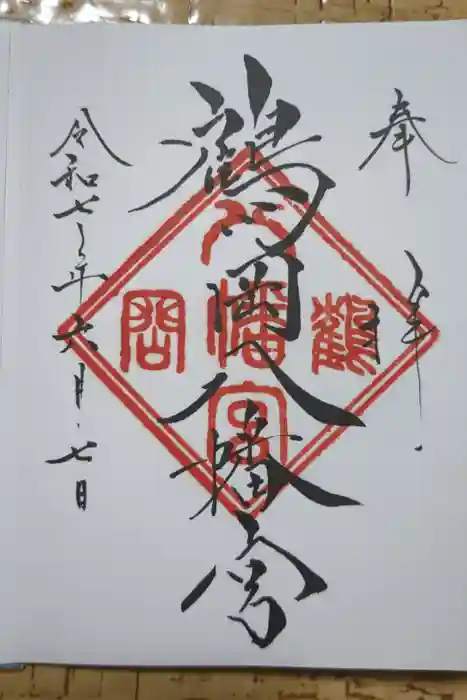 奉拝
鶴岡八幡宮
令和七年六月七日
鶴
八幡宮
岡